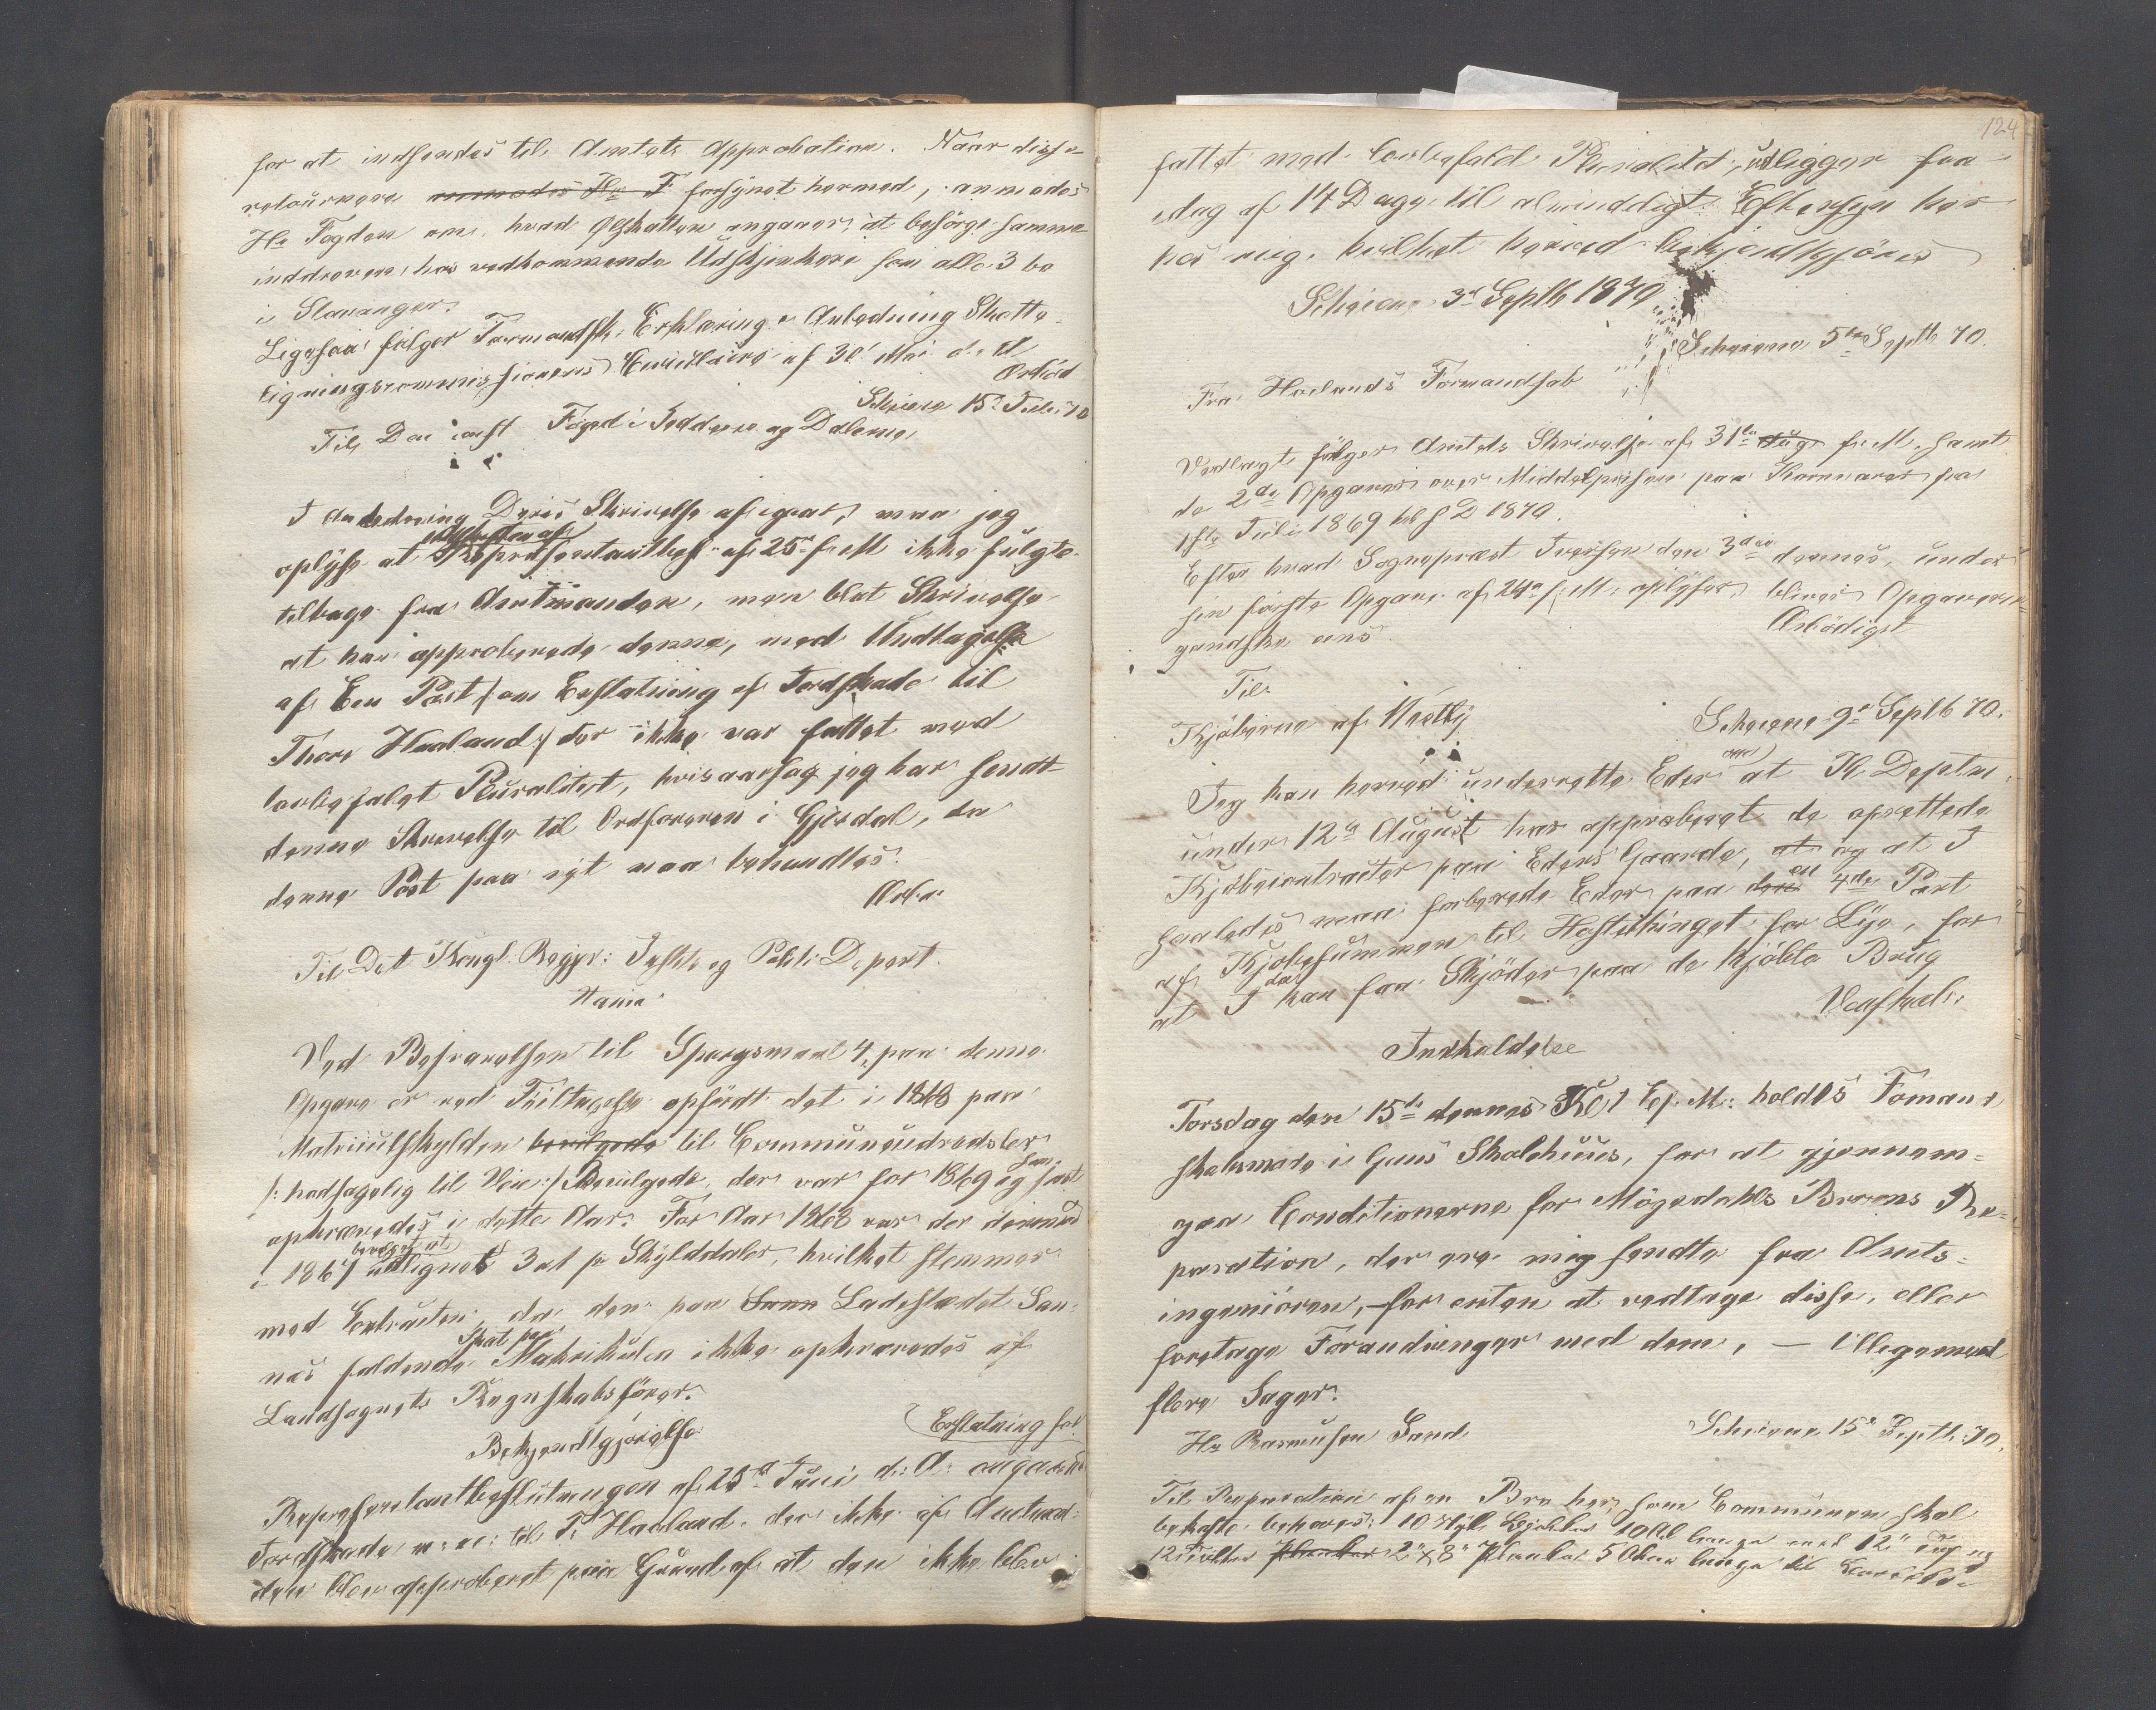 for at indsendes til Amtets Approbation. Naar disse
retournere anmodes Hr F forsynet hermed, anmodes
Hr Fogden om, hvad Ølskatten angaaer, at besörge samme
inddreven hos vedkommende Udskjenkere som alle 3 bo
i Stavanger.
Ligesaa fölger Formandsk. Erklæring i Anledning Skatte
ligningscommissionens Circulaire af 30 Mai d. A.
Ærböd
Scheiene 15de Juli 70
Til Foged i Jedderen og Dalerne
I Anledning Deres Skrivelse af igaar, maa jeg
oplyse at Repræsentantbesl. af 25de f. M ikke fulgte
tilbage fra Amtmanden, men blot Skrivelse
at han approberede denne, med Undtagelse
af Een Post /: om Erstatning af Jordskade til
Thore Haaland :/ der ikke var fattet med
lovbefalet Pluralitet, hvisaarsag jeg har sendt
denne Skrivelse til Ordföreren i Gjesdal, da
denne Post paa nyt maa behandles.
Ærb.
Til Det Kongl. Regjer: Justits og Politi Depart.
Ved Besvarelsen til Spørgsmaal 4, paa denne
Opgave er ved Feiltagelse opfördt det i 1868 paa
Matriculskylden bevilgede til Communeudredsler
/: hodsagelig til Veie :/ Bevilgede, der var for 1869 og
opkrævedes i dette Aar. For Aar 1868 var der derimod
i 1867 bevilget at udlignet 3 pr Skylddaler, hvilket stemmer
med Extracten, da den paa Sann Ladestædet San-
næs faldende Skat paa Matrikulen ikke opkrævedes af
Landsognets Regnskabsförer.
Erstatning for
Bekjendtgjörelse
Repræsentantbeslutningen af 25de Juni d: A: angaaende
Jordskade m: m: til T. Haaland, der ikke af Amtman-
den blev approberet paa Grund af at den ikke blev
124
fattet med lovbefald Pluralitet, udligger fra
idag af 14 Dage til almindeligt Eftersyn her
hos mig, hvilket herved bekjendtgjöres
Scheiene 3de Septb 1870
Scheiene 5te Septb 70.
Fra Höilands Formandskab
Vedlagt fölger Amtets Skrivelse af 31te Aug f. M. samt
de 2de Opgaver over Middelprisen paa Kornvarer fra
1ste Juli 1869 til s D 1870.
Efter hvad Sognepræst Iversen den 3die dennes, under
sin förste Opgave af 24de f. M. oplyser, bliver Opgaverne
gandske ens.
Ærbödigst
Til
Kjöberne af Vestly
Scheiene 9de Septb 70.
Jeg kan herved underrette Eder om at K. Deptm.
under 12te August har approberet de oprettede
Kjöbecontracter paa Eders Gaarde, at og at I
saaledes maa forberede Eder paa den en 4de Part
af Kjöbesummen til Hösttthinget for Lye, for
at I da kan faa Skjöder paa de kjöbte Brug
Venskabl.
Indkaldelse
Torsdag den 15de dennes Kl 1 Ef. M: holdes Formand
skabsmøde i Gaus Skolehuus, for at gjennem-
gaa Conditionerne for Mögedahls Broens Re-
paration, der ere mig sendte fra Amts-
ingeniören, for enten at vedtage disse, eller
foretage Forandringer med dem, — Illegemed
flere Sager.
Hr Rasmusen Sand
Scheiene 15de Septb. 70.
Til Reparation af en Bro her, som Communen skal
bekoste behöves: 10 Styk Bjelker 10 Al lange med 12" og
12 Tolter Planker 2" x 8" Planker 5 Alen lange til